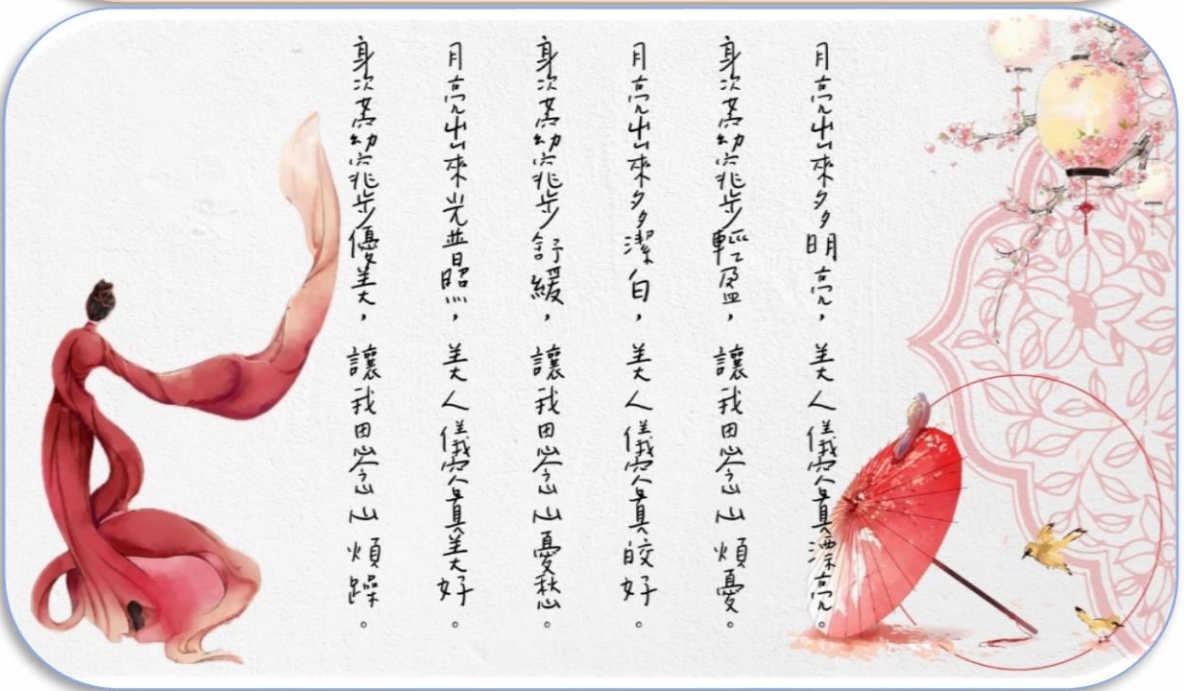 月亮出來多明亮，美人儀容真漂亮。
身姿窈窕步輕盈，讓我思念心煩憂。
月亮出來多潔白，美人儀容真皎好。
身姿窈窕步舒緩，讓我思念心憂愁。
月亮出來光普照，美人儀容真美好。
身姿窈窕步優美，讓我思念心煩躁。